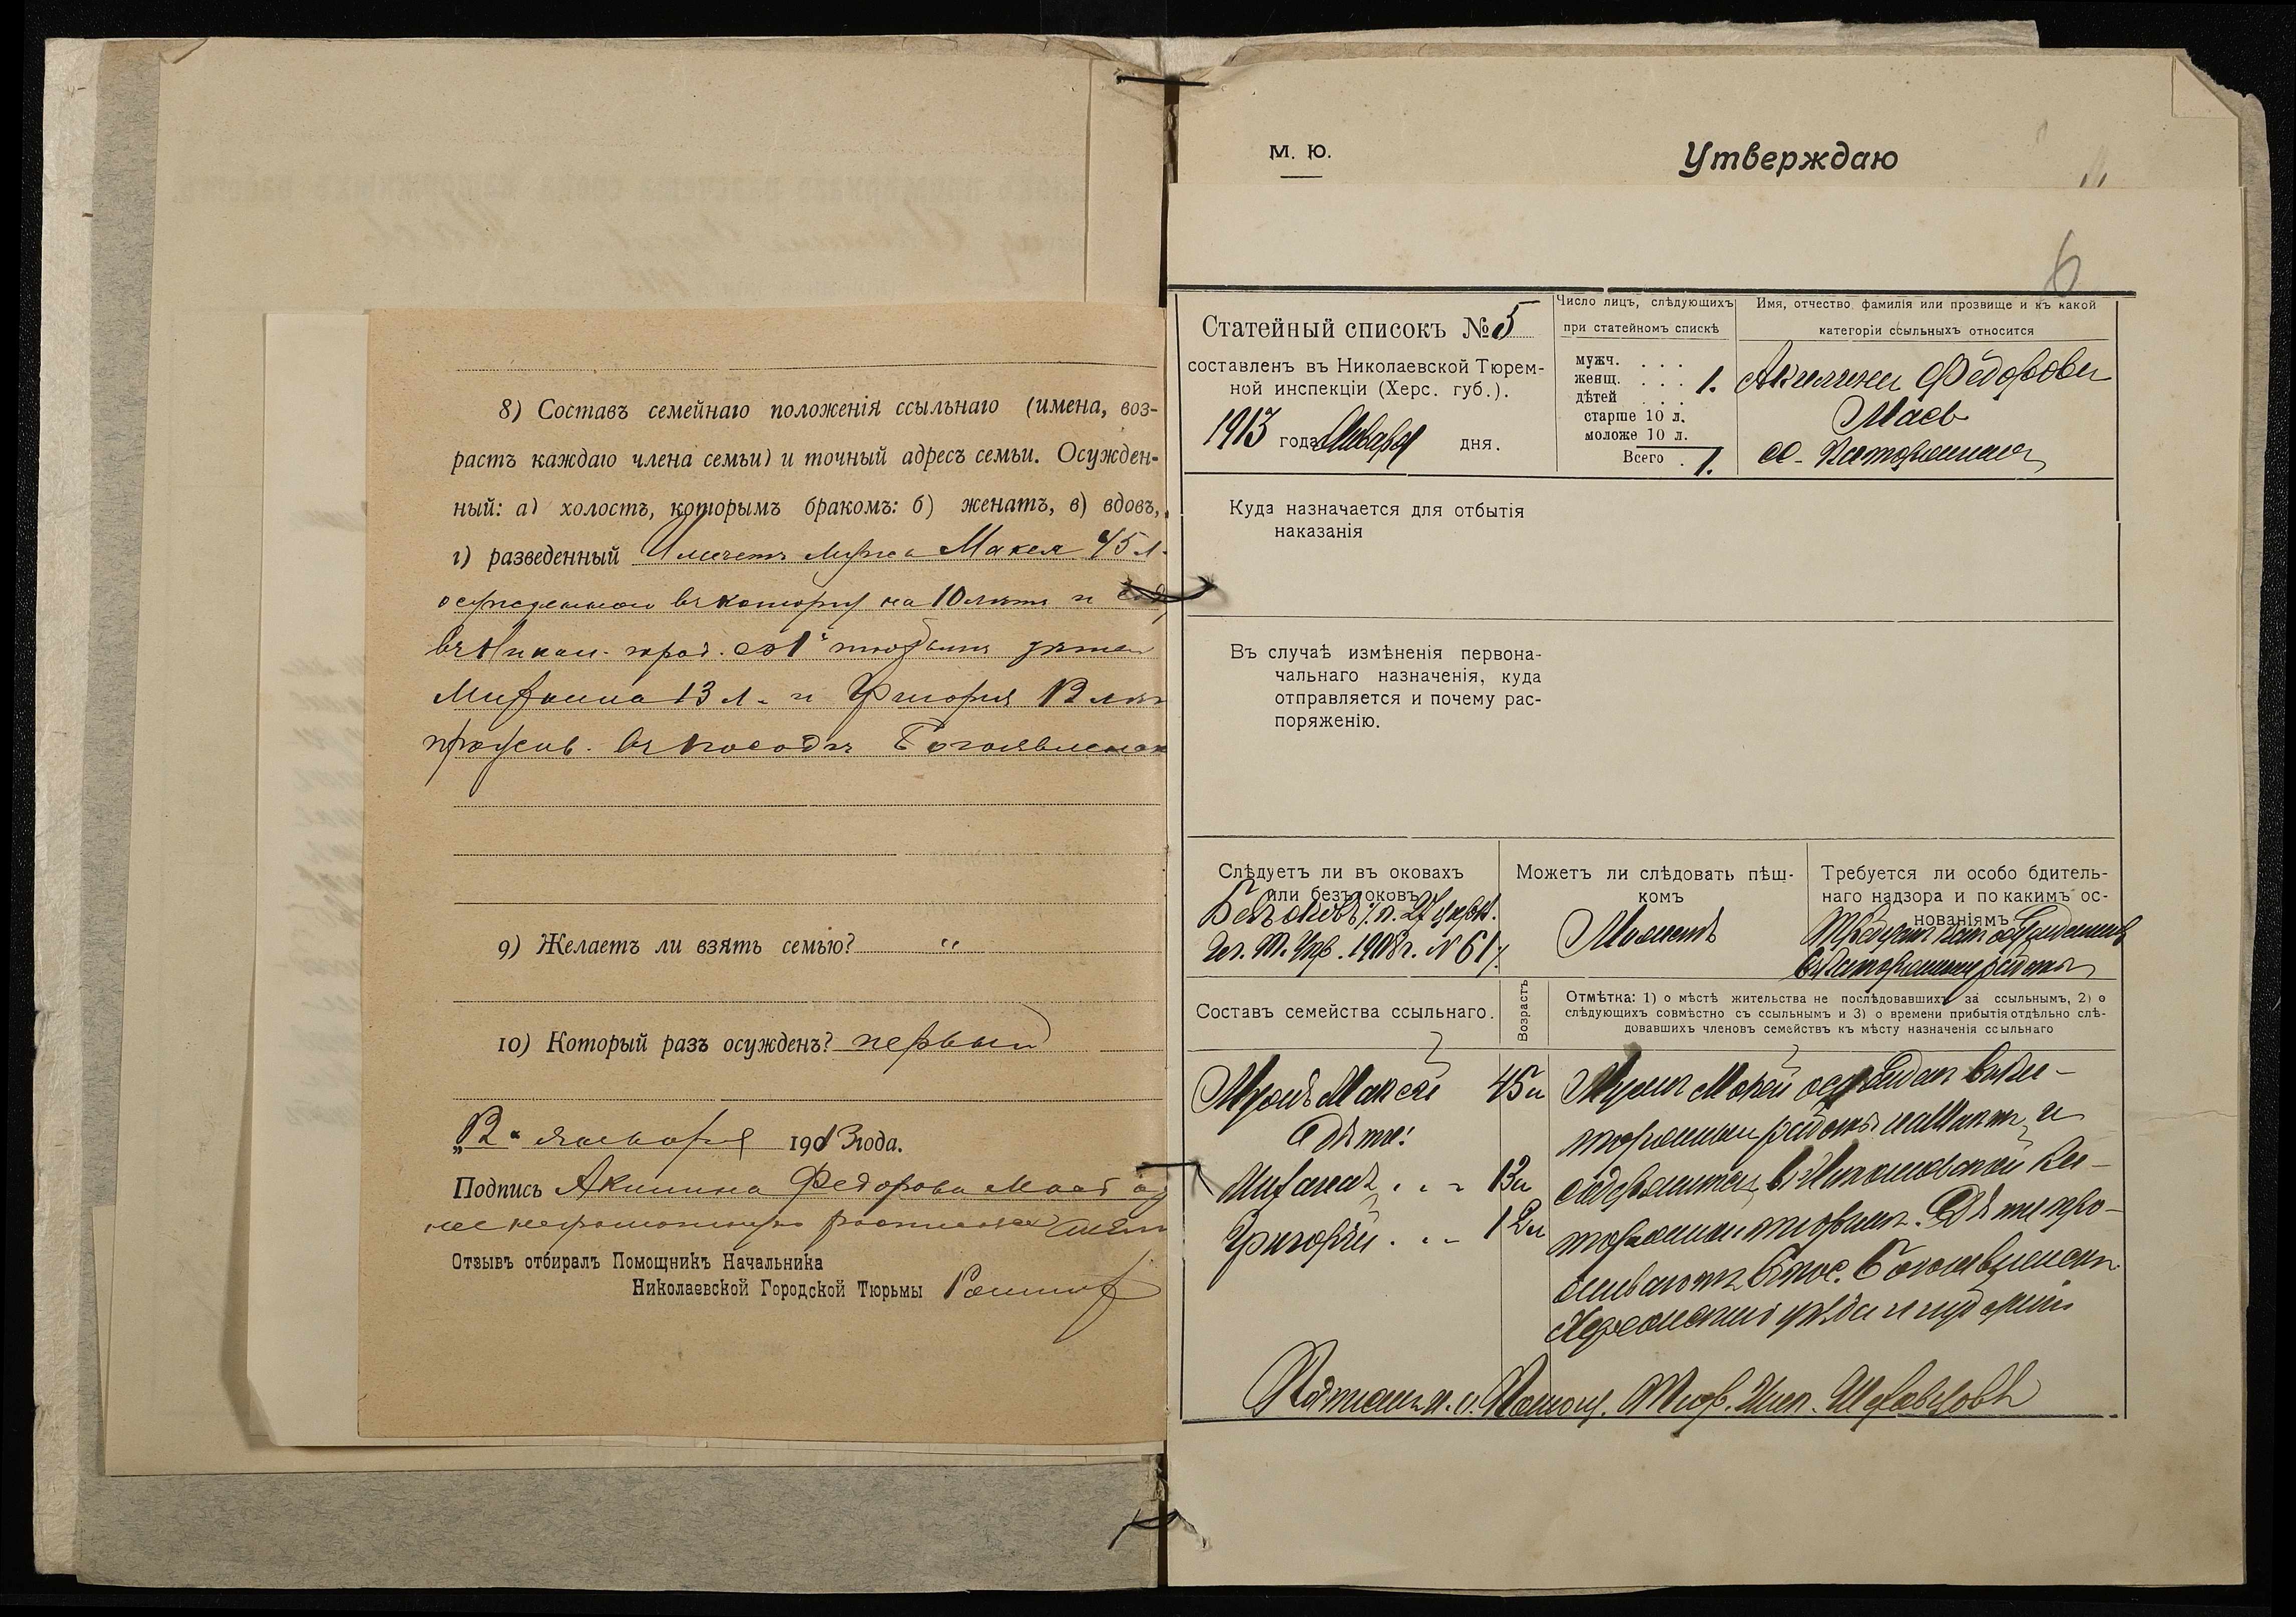 8) Составъ семейнаго положенія ссыльнаго (имена, воз-
растъ каждаго члена семьи) и точный адресъ семьи. Осужден-
ный: а) холостъ, которымъ бракомъ: б) женатъ, в) вдовъ,
г) разведенный Имѣетъ мужа Макея 45 л.
осужденнаго въ каторгу на 10 лѣтъ и
въ Никол. тюрьмѣ дѣтей
Митрофана 13 л. и Григорія 12 лѣт
прожив. въ посадѣ Богоявленск
9) Желаетъ ли взять семью? "
10) Который разъ осужденъ? первый
„12" января 1913 года.
Подпись Акилина Федорова Маев а за
нее неграмотную расписался
Отзывъ отбиралъ Помощникъ Начальника
Николаевской Городской Тюрьмы
М. Ю.
Утверждаю
6
Статейный списокъ № 5
составленъ въ Николаевской Тюрем-
ной инспекціи (Херс. губ.).
1913 года Января дня.
Число лицъ, слѣдующихъ
при статейномъ спискѣ
мужч. . . .
женщ. . . . 1.
дѣтей . . .
старше 10 л.
моложе 10 л.
Всего . 1.
Имя, отчество фамилія или прозвище и къ какой
категоріи ссыльныхъ относится
Акилина Федорова
Маев
сс.-каторжная
Куда назначается для отбытія
наказанія
Въ случаѣ измѣненія первона-
чальнаго назначенія, куда
отправляется и почему рас-
поряженію.
Слѣдуетъ ли въ оковахъ
или безъ оковъ
Безъ оковъ ц. 27 цирк.
Гл. Т. Упр. 1908 г. № 61
Можетъ ли слѣдовать пѣш-
комъ
Можетъ
Требуется ли особо бдитель-
наго надзора и по какимъ ос-
нованіямъ
Требуетъ какъ осужденная
въ каторжныя работы
Составъ семейства ссыльнаго.
Возрастъ
Отмѣтка: 1) о мѣстѣ жительства не послѣдовавшихъ за ссыльнымъ, 2) о
слѣдующихъ совмѣстно съ ссыльнымъ и 3) о времени прибытія отдѣльно слѣ-
довавшихъ членовъ семействъ къ мѣсту назначенія ссыльнаго
Мужъ Макей 45 л
Дѣти:
Митрофанъ . . 13 л
Григорій . . 12 л
Мужъ Макей осужденъ въ ка-
торжныя работы на 10 лѣтъ и
содержится въ Николаевской ка-
торжной тюрьмѣ. Дѣти про-
живаютъ въ пос. Богоявленскѣ
Херсонскаго уѣзда и губерніи
Подписалъ и. о. Помощ. Тюр. Инсп.